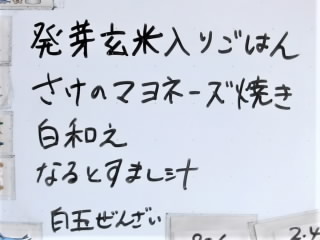 発芽玄米入りごはん
さけのマヨネーズ焼き
白和え
なるとすまし汁
白玉ぜんざい